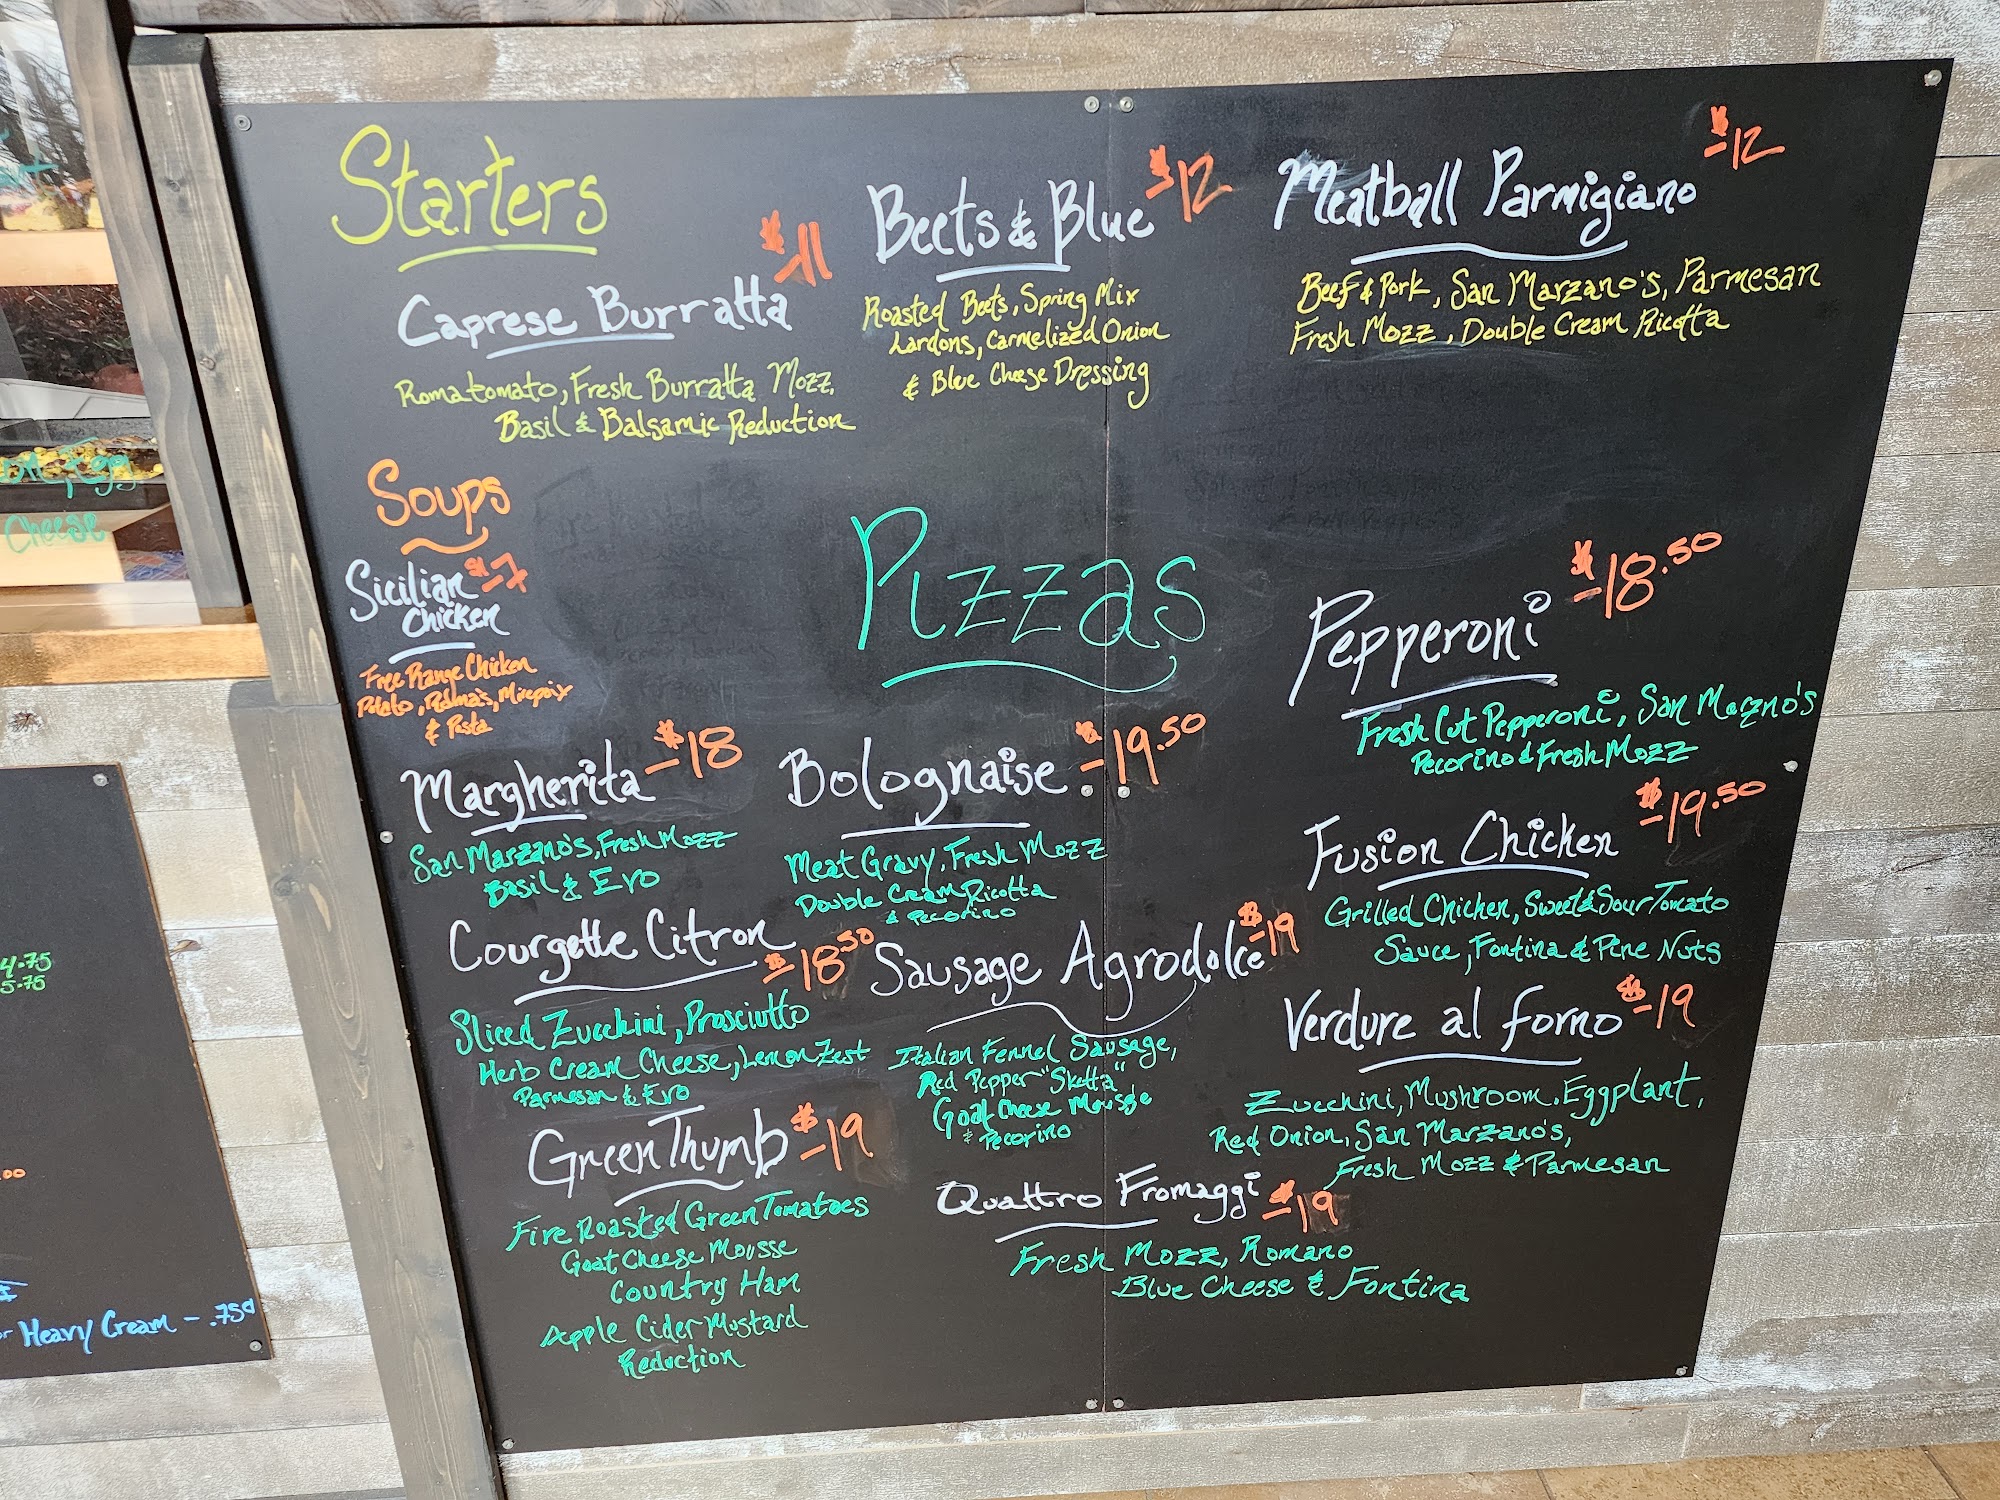 Starters
Caprese Burratta $-11
Romatomato, Fresh Burratta Mozz,
Basil & Balsamic Reduction
Beets & Blue $-12
Roasted Beets, Spring Mix
Lardons, Carmelized Onion
& Blue Cheese Dressing
Meatball Parmigiano $-12
Beef & Pork, San Marzano's, Parmesan
Fresh Mozz, Double Cream Ricotta
Soups
Sicilian $-7
Chicken
Free Range Chicken
Potato, Mirepoix
& Pasta
Pizzas
Margherita $-18
San Marzano's, Fresh Mozz
Basil & Evo
Courgette Citron
$-18.50
Sliced Zucchini, Prosciutto
Herb Cream Cheese, Lemon Zest
Parmesan & Evo
Green Thumb $-19
Fire Roasted Green Tomatoes
Goat Cheese Mousse
Country Ham
Apple Cider Mustard
Reduction
Bolognaise $-19.50
Meat Gravy, Fresh Mozz
Double Cream Ricotta
& Pecorino
Sausage Agrodolce $-19
Italian Fennel Sausage,
Red Pepper "Sketta"
Goat Cheese Mousse
& Pecorino
Quattro Fromaggi $-19
Fresh Mozz, Romano
Blue Cheese & Fontina
Pepperoni $-18.50
Fresh Cut Pepperoni, San Marzno's
Pecorino & Fresh Mozz
Fusion Chicken $-19.50
Grilled Chicken, Sweet & Sour Tomato
Sauce, Fontina & Pine Nuts
Verdure al forno $-19
Zucchini, Mushroom, Eggplant,
Red Onion, San Marzano's,
Fresh Mozz & Parmesan
Egg
Cheese
4.75
5.75
.00
or Heavy Cream - .750